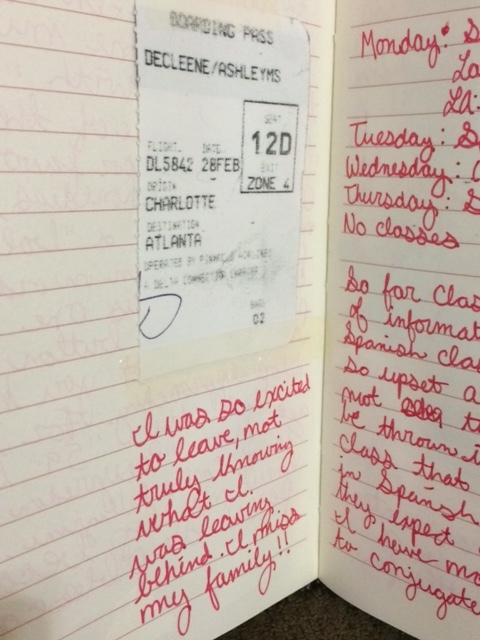 BOARDING PASS
DECLEENE/ASHLEYMS
SEAT
12D
FLIGHT DATE
DL5842 28FEB
EXIT
ZONE 4
ORIGIN
CHARLOTTE
DESTINATION
ATLANTA
OPERATED BY PINNACLE AIRLINES
A DELTA CONNECTION CARRIER
02
I was so excited
to leave, not
truly knowing
what I
was leaving
behind. I miss
my family!!
Monday: S
La
LA:
Tuesday: S
Wednesday:
Thursday:
No classes
So far clas
of informat
Spanish clas
so upset a
not th
be thrown i
class that
in Spanish
they expect
I have mo
to conjugate